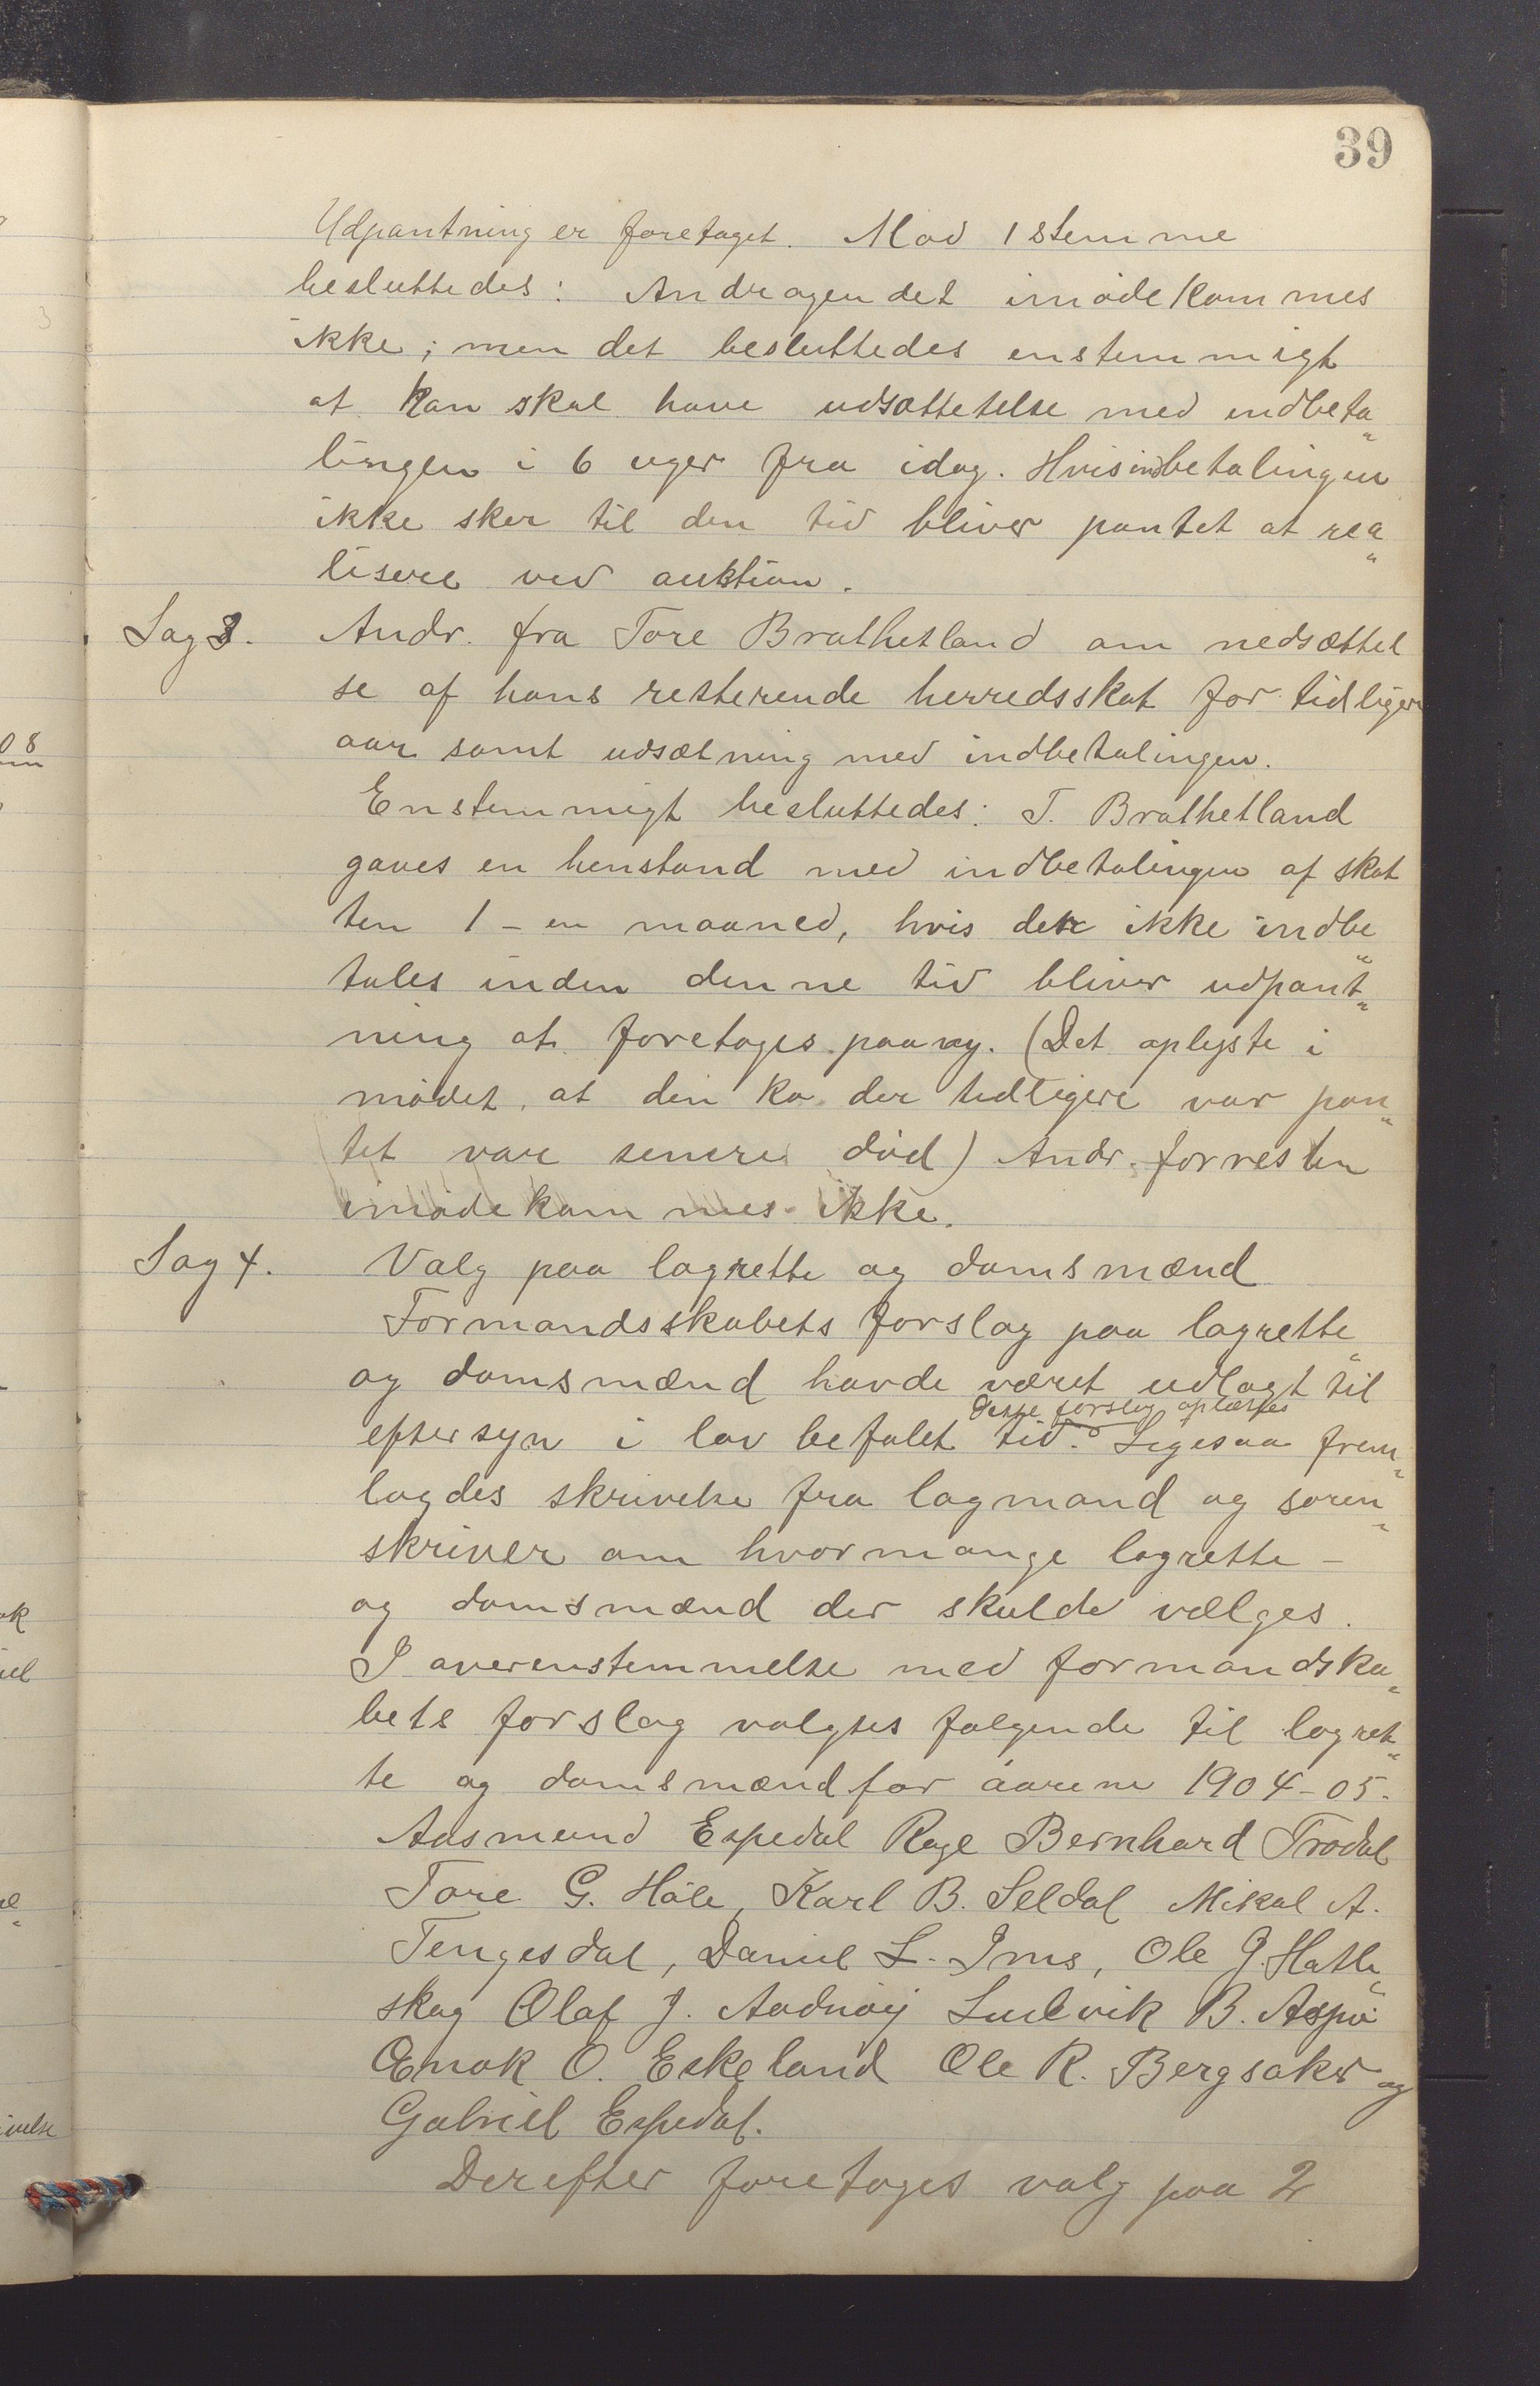 39
Udpantning er foretaget. Mod 1 stemme
besluttedes: Andragendet imødekommes
ikke; men det besluttedes enstemmigt
at han skal have udsættetelse med indbeta„
lingen i 6 uger fra idag. Hvis indbetalingen
ikke sker til den tid bliver pantet at rea„
lisere ved auktion.
Sag 3. Andr. fra Tore Brathetland om nedsættel
se af hans resterende herredsskat for tidligere
aar samt udsætning med indbetalingen.
Enstemmigt besluttedes: T. Brathetland
gaves en henstand med indbetalingen af skat
ten 1 - en maaned, hvis den ikke indbe„
tales inden denne tid bliver udpant„
ning at foretages paa ny. (Det oplyste i
mødet, at den ko der tidligere var pan„
tet var senere død) Andr. forresten
imødekommes ikke.
Sag 4. Valg paa lagrette og domsmænd
Formandsskabets forslag paa lagrette„
og domsmænd havde været udlagt til
Dette forslag oplæstes
eftersyn i lov befalet tid. Ligesaa frem„
lagdes skrivelse fra lagmand og soren„
skriver om hvormange lagrette -
og domsmænd der skulde vælges.
I overenstemmelse med formandska„
bets forslag valgtes følgende til lagret„
te og domsmænd for aarene 1904-05.
Aasmund Espedal Rage Bernhard Trodal
Tore G. Høle, Karl B. Seldal Mikal A.
Tengesdal, Daniel L. Ims, Ole J. Hatle„
skog Olaf J. Aadnøy Ludvik B. Aspø
Enok O. Eskeland Ole R. Bergsaker og
Gabriel Espedal.
Derefter foretoges valg paa 2